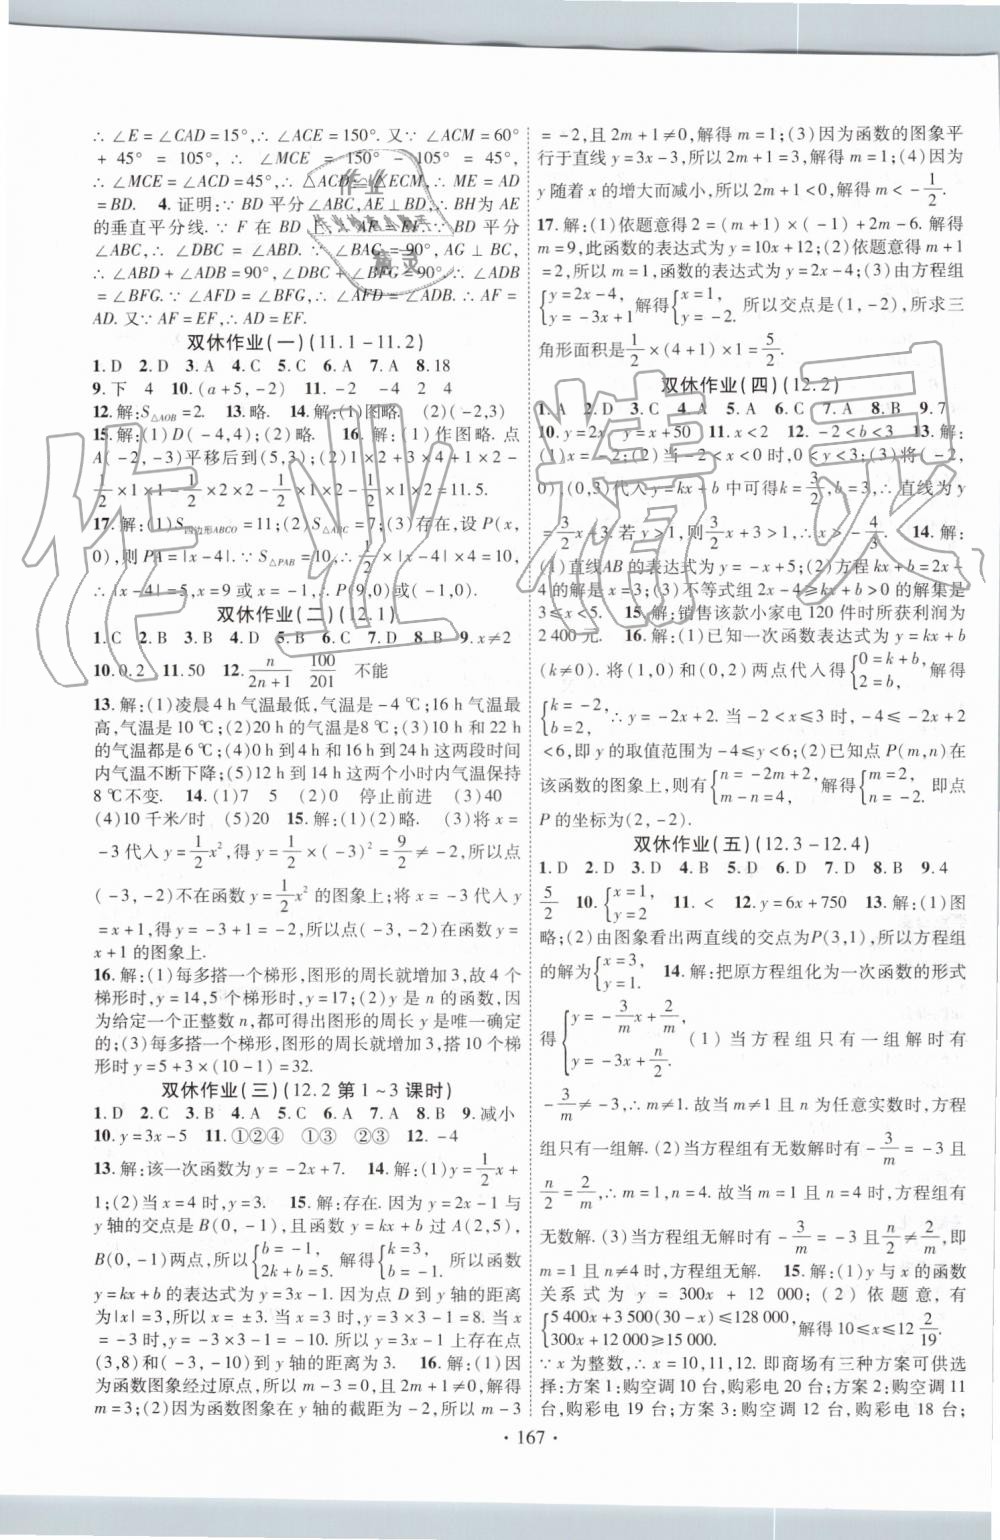 ∴ ∠E=∠CAD=15°,∴ ∠ACE=150°. 又∵ ∠ACM=60°
+45°=105°,∴ ∠MCE=150°-105°=45°,
∴ ∠MCE=∠ACD=45°,∴ △ACD≌△ECM,∴ ME=AD
=BD. 4. 证明:∵ BD 平分∠ABC,AE⊥BD,∴ BH为 AE
的垂直平分线. ∵ F 在 BD 上,∴ AF=EF. ∵ BD 平分
∠ABC,∴ ∠DBC=∠ABD. ∵ ∠BAC=90°,AG⊥BC,
∴ ∠ABD+∠ADB=90°,∠DBC+∠BFG=90°,∴ ∠ADB
=∠BFG. ∵ ∠AFD=∠BFG,∴ ∠AFD=∠ADB. ∴ AF=
AD. 又∵ AF=EF,∴ AD=EF.
双休作业(一)(11.1-11.2)
1. D 2. D 3. A 4. C 5. C 6. D 7. A 8. 18
9. 下 4 10. (a+5,-2) 11. -2 -4 2 4
12. 解:S△AOB=2. 13. 略. 14. 解:(1)图略. (2)(-2,3)
15. 解:(1)D(-4,4);(2)略. 16. 解:(1)作图略. 点
A(-2,-3)平移后到(5,3);(2)1×2+3×4+1×2-
1/2×1×1-1/2×2×2-1/2×1×2=11.5.
17. 解:(1)S四边形ABCO=11;(2)S△ABC=7;(3)存在,设 P(x,
0),则PA=|x-4|. ∵ S△PAB=10,∴ 1/2×|x-4|×4=10,
∴ |x-4|=5,x=9或x=-1,∴ P(9,0)或(-1,0).
双休作业(二)(12.1)
1. C 2. B 3. B 4. D 5. B 6. C 7. D 8. B 9. x≠2
10. 0.2 11. 50 12. n/(2n+1) 100/201 不能
13. 解:(1)凌晨 4 h 气温最低,气温是-4 ℃;16 h 气温最
高,气温是 10 ℃;(2)20 h 的气温是8 ℃;(3)10 h 和 22 h
的气温都是 6 ℃;(4)0 h 到 4 h 和 16 h 到 24 h 这两段时间
内气温不断下降;(5)12 h 到 14 h 这两个小时内气温保持
8 ℃不变. 14. (1)7 5 (2)0 停止前进 (3)40
(4)10 千米/时 (5)20 15. 解:(1)(2)略. (3)将 x=
-3代入 y=1/2x²,得 y=1/2×(-3)²=4.5≠-2,所以点
(-3,-2)不在函数 y=1/2x² 的图象上;将 x=-3 代入 y
=x+1,得 y=-3+1=-2,所以点(-3,-2)在函数 y=
x+1 的图象上.
16. 解:(1)每多搭一个梯形,图形的周长就增加 3,故 4 个
梯形时,y=14,5 个梯形时,y=17;(2)y 是 n 的函数,因
为给定一个正整数 n,都可得出图形的周长 y 是唯一确定
的;(3)每多搭一个梯形,图形的周长就增加 3,搭 10 个梯
形时 y=5+3×(10-1)=32.
双休作业(三)(12.2 第 1~3 课时)
1. D 2. C 3. B 4. A 5. C 6. D 7. A 8. B 9. 减小
10. y=3x-5 11. ①②④ ①③ ②③ 12. -4
13. 解:该一次函数为 y=-2x+7. 14. 解:(1)y=1/2x+
1;(2)当 x=4 时,y=3. 15. 解:存在. 因为 y=2x-1 与
y 轴的交点是 B(0,-1),且函数 y=kx+b 过 A(2,5),
B(0,-1)两点,所以{b=-1, 2k+b=5. 解得{k=3, b=-1. 所以函数
y=kx+b 的表达式为 y=3x-1. 因为点 D 到 y 轴的距离
为|x|=3,所以 x=±3. 当 x=3 时,y=3×3-1=8. 当 x
=-3 时,y=-3×3-1=-10. 所以 y=3x-1 上存在点
(3,8)和(-3,-10)到 y 轴的距离为 3. 16. 解:(1)因
为函数图象经过原点,所以 m-3=0,解得 m=3,解得
m=3;(2)因为函数图象在 y 轴的截距为-2,所以 m-3
=-2,且 2m+1≠0,解得 m=1;(3)因为函数的图象平
行于直线 y=3x-3,所以 2m+1=3,解得 m=1;(4)因为
y 随着 x 的增大而减小,所以 2m+1<0,解得 m<-1/2.
17. 解:(1)依题意得 2=(m+1)×(-1)+2m-6. 解得
m=9,此函数的表达式为 y=10x+12;(2)依题意得 m+1
=2,所以 m=1,函数的表达式为 y=2x-4;(3)由方程组
{y=2x-4, y=-3x+1 解得{x=1, y=-2. 所以交点是(1,-2),所求三
角形面积是1/2×(4+1)×1=5/2.
双休作业(四)(12.2)
1. A 2. D 3. C 4. A 5. C 6. C 7. A 8. B 9. 7
10. y=2x y=x+50 11. x<2 12. -2<b<3 13. 解:
(1)x=-2;(2)当-2<x<0时,0<y<3;(3)将(-2,
0),(0,3)代入 y=kx+b 中可得k=3/2,b=3,∴ 直线为 y
=3/2x+3. 若 y>1,则3/2x+3>1,∴ x>-4/3. 14. 解:
(1)直线AB 的表达式为 y=-x+5;(2)方程 2x-4=kx+b
的解是 x=3;(3)不等式组 2x-4≥kx+b>0 的解集是
3≤x<5. 15. 解:销售该款小家电 120 件时所获利润为
2 400 元. 16. 解:(1)已知一次函数表达式为 y=kx+b
(k≠0). 将(1,0)和(0,2)两点代入得{0=k+b, 2=b. 解得
{k=-2, b=2, ∴ y=-2x+2. 当-2<x≤3 时,-4≤-2x+2
<6,即 y 的取值范围为-4≤y<6;(2)已知点 P(m,n)在
该函数的图象上,则有{n=-2m+2, m-n=4, 解得{m=2, n=-2. 即点
P 的坐标为(2,-2).
双休作业(五)(12.3-12.4)
1. D 2. D 3. D 4. B 5. D 6. A 7. B 8. B 9. 4
5/2 10. {x=1, y=2 11. < 12. y=6x+750 13. 解:(1)图
略;(2)由图象看出两直线的交点为P(3,1),所以方程组
的解为{x=3, y=1. 14. 解:把原方程组化为一次函数的形式
得{y=-3/m x+2/m, y=-3x+n/2. (1)当方程组只有一组解时有
-3/m≠-3,∴ m≠1. 故当 m≠1 且 n 为任意实数时,方程
组只有一组解. (2)当方程组有无数解时有-3/m=-3且
n/2=2/m,∴ m=1,n=4. 故当 m=1 且 n=4 时,方程组有
无数解. (3)当方程组无解时有-3/m=-3且n/2≠2/m,即
m=1且 n≠4 时,方程组无解. 15. 解:(1)y 与 x 的函数
关系式为 y=300x+12 000;(2)依题意,有
{5 400x+3 500(30-x)≤128 000, 300x+12 000≥15 000. 解得 10≤x≤12 2/19.
∵ x 为整数,∴ x=10,11,12. 即商场有三种方案可供选
择:方案 1:购空调 10 台,购彩电 20 台;方案 2:购空调 11
台,购彩电 19 台;方案 3:购空调 12 台,购彩电 18 台;
· 167 ·
作业精灵